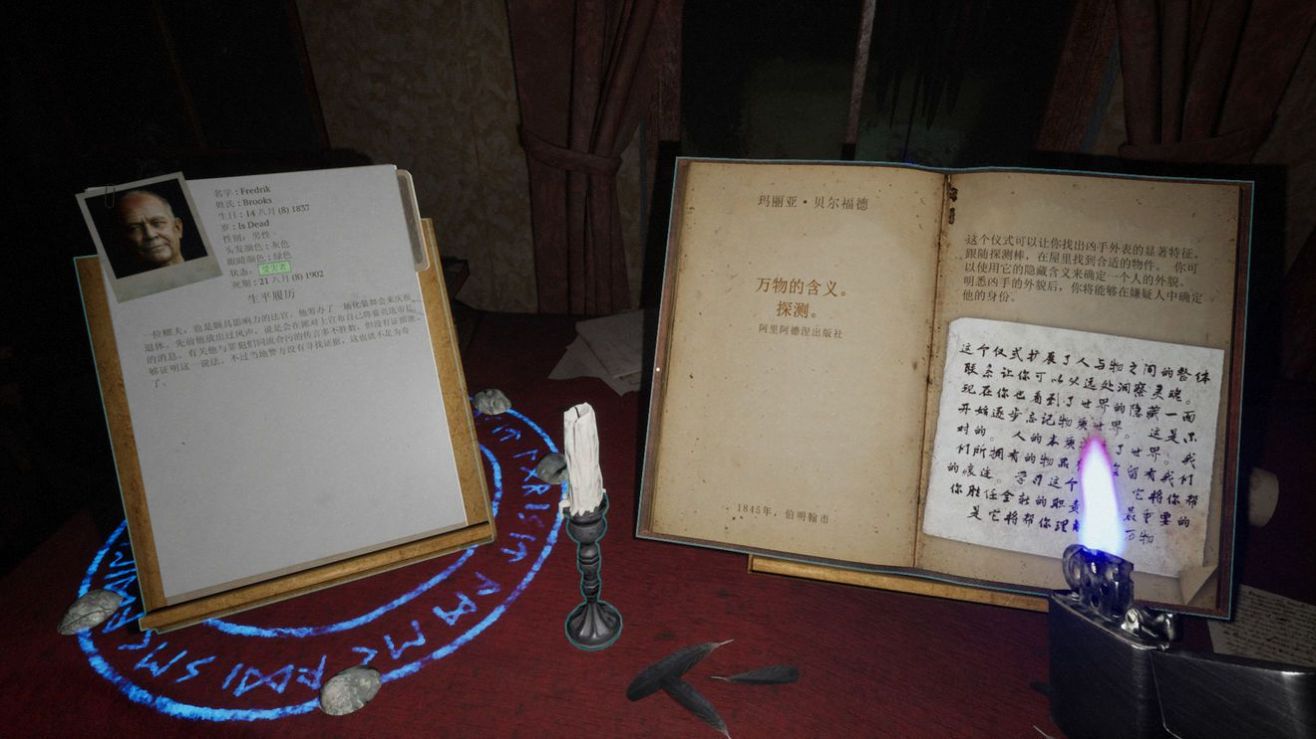 名字 : Fredrik
姓氏 : Brooks
生日 : 14 八月 (8) 1837
岁 : Is Dead
性别 : 男性
头发颜色 : 灰色
眼睛颜色 : 绿色
状态 : 受害者
死期 : 21 八月 (8) 1902
生平履历
一位鳏夫，也是颇具影响力的法官。他筹办了一场化装舞会来庆祝
退休。先前他放出过风声，说是会在派对上宣布自己将要竞选市长
的消息。有关他与罪犯们同流合污的传言多不胜数，但没有证据能
够证明这一说法。不过当地警方没有寻找证据，这也就不足为奇
了。
玛丽亚・贝尔福德
万物的含义。
探测。
阿里阿德涅出版社
1845年，伯明翰市
这个仪式可以让你找出凶手外表的显著特征。
跟随探测棒，在屋里找到合适的物件。 你可
以使用它的隐藏含义来确定一个人的外貌。
明悉凶手的外貌后，你将能够在嫌疑人中确定
他的身份。
这个仪式扩展了人与物之间的整体
联系让你可以从远处洞察灵魂。
现在你也看到了世界的隐藏一面
开始逐步忘记物质世界。 这是
对的。 人的本质 了世界。 我
们所拥有的物品 留有我们
的痕迹。 学习这个 它将你帮
你胜任全新的职责 最重要的
是它将帮你理 万物